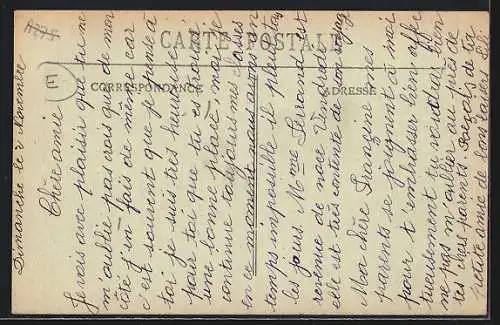 CARTE POSTALE
CORRESPONDANCE
ADRESSE
E
Dimanche le 2 Novembre
Chère amie
Je vois avec plaisir que tu ne
m'oublie pas crois que de mon
côté j'en fais de même car
c'est souvent que je pense à
toi je suis très heureuse
pour toi que tu es trouvé
une bonne place, moi je
continue toujours mes classes
en ce moment nous avons un
temps impossible il pleut tous
les jours. Mme Serrand est
revenue de noce Vendredi
elle est très contente de son voyage
Ma chère mes
parents se joignent à moi
pour t'embrasser bien affec
tueusement tu voudras bien
ne pas m'oublier au près de
tes chers parents. Reçois de ta
petite amie de bons baisers